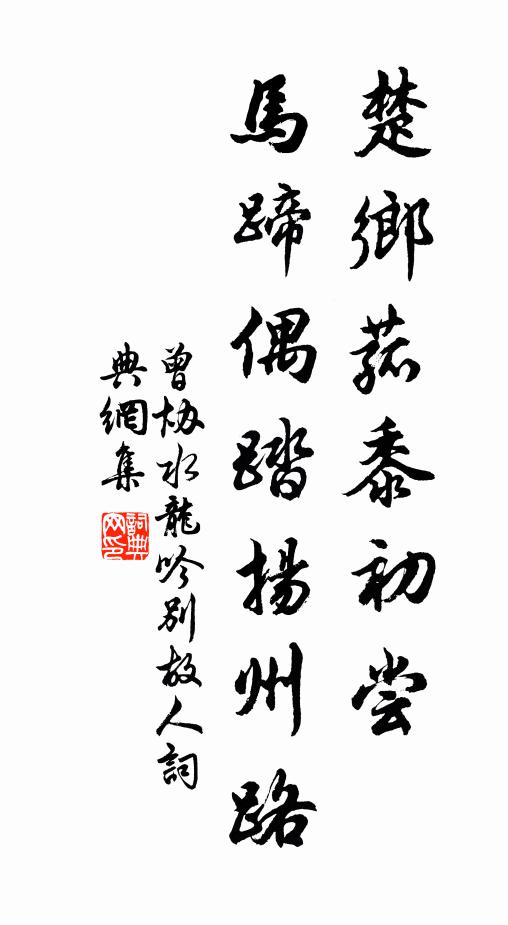 楚鄉菰黍初尝
馬蹄偶踏揚州路
曾协水龍吟别故人詞
典網集
詞典
网印